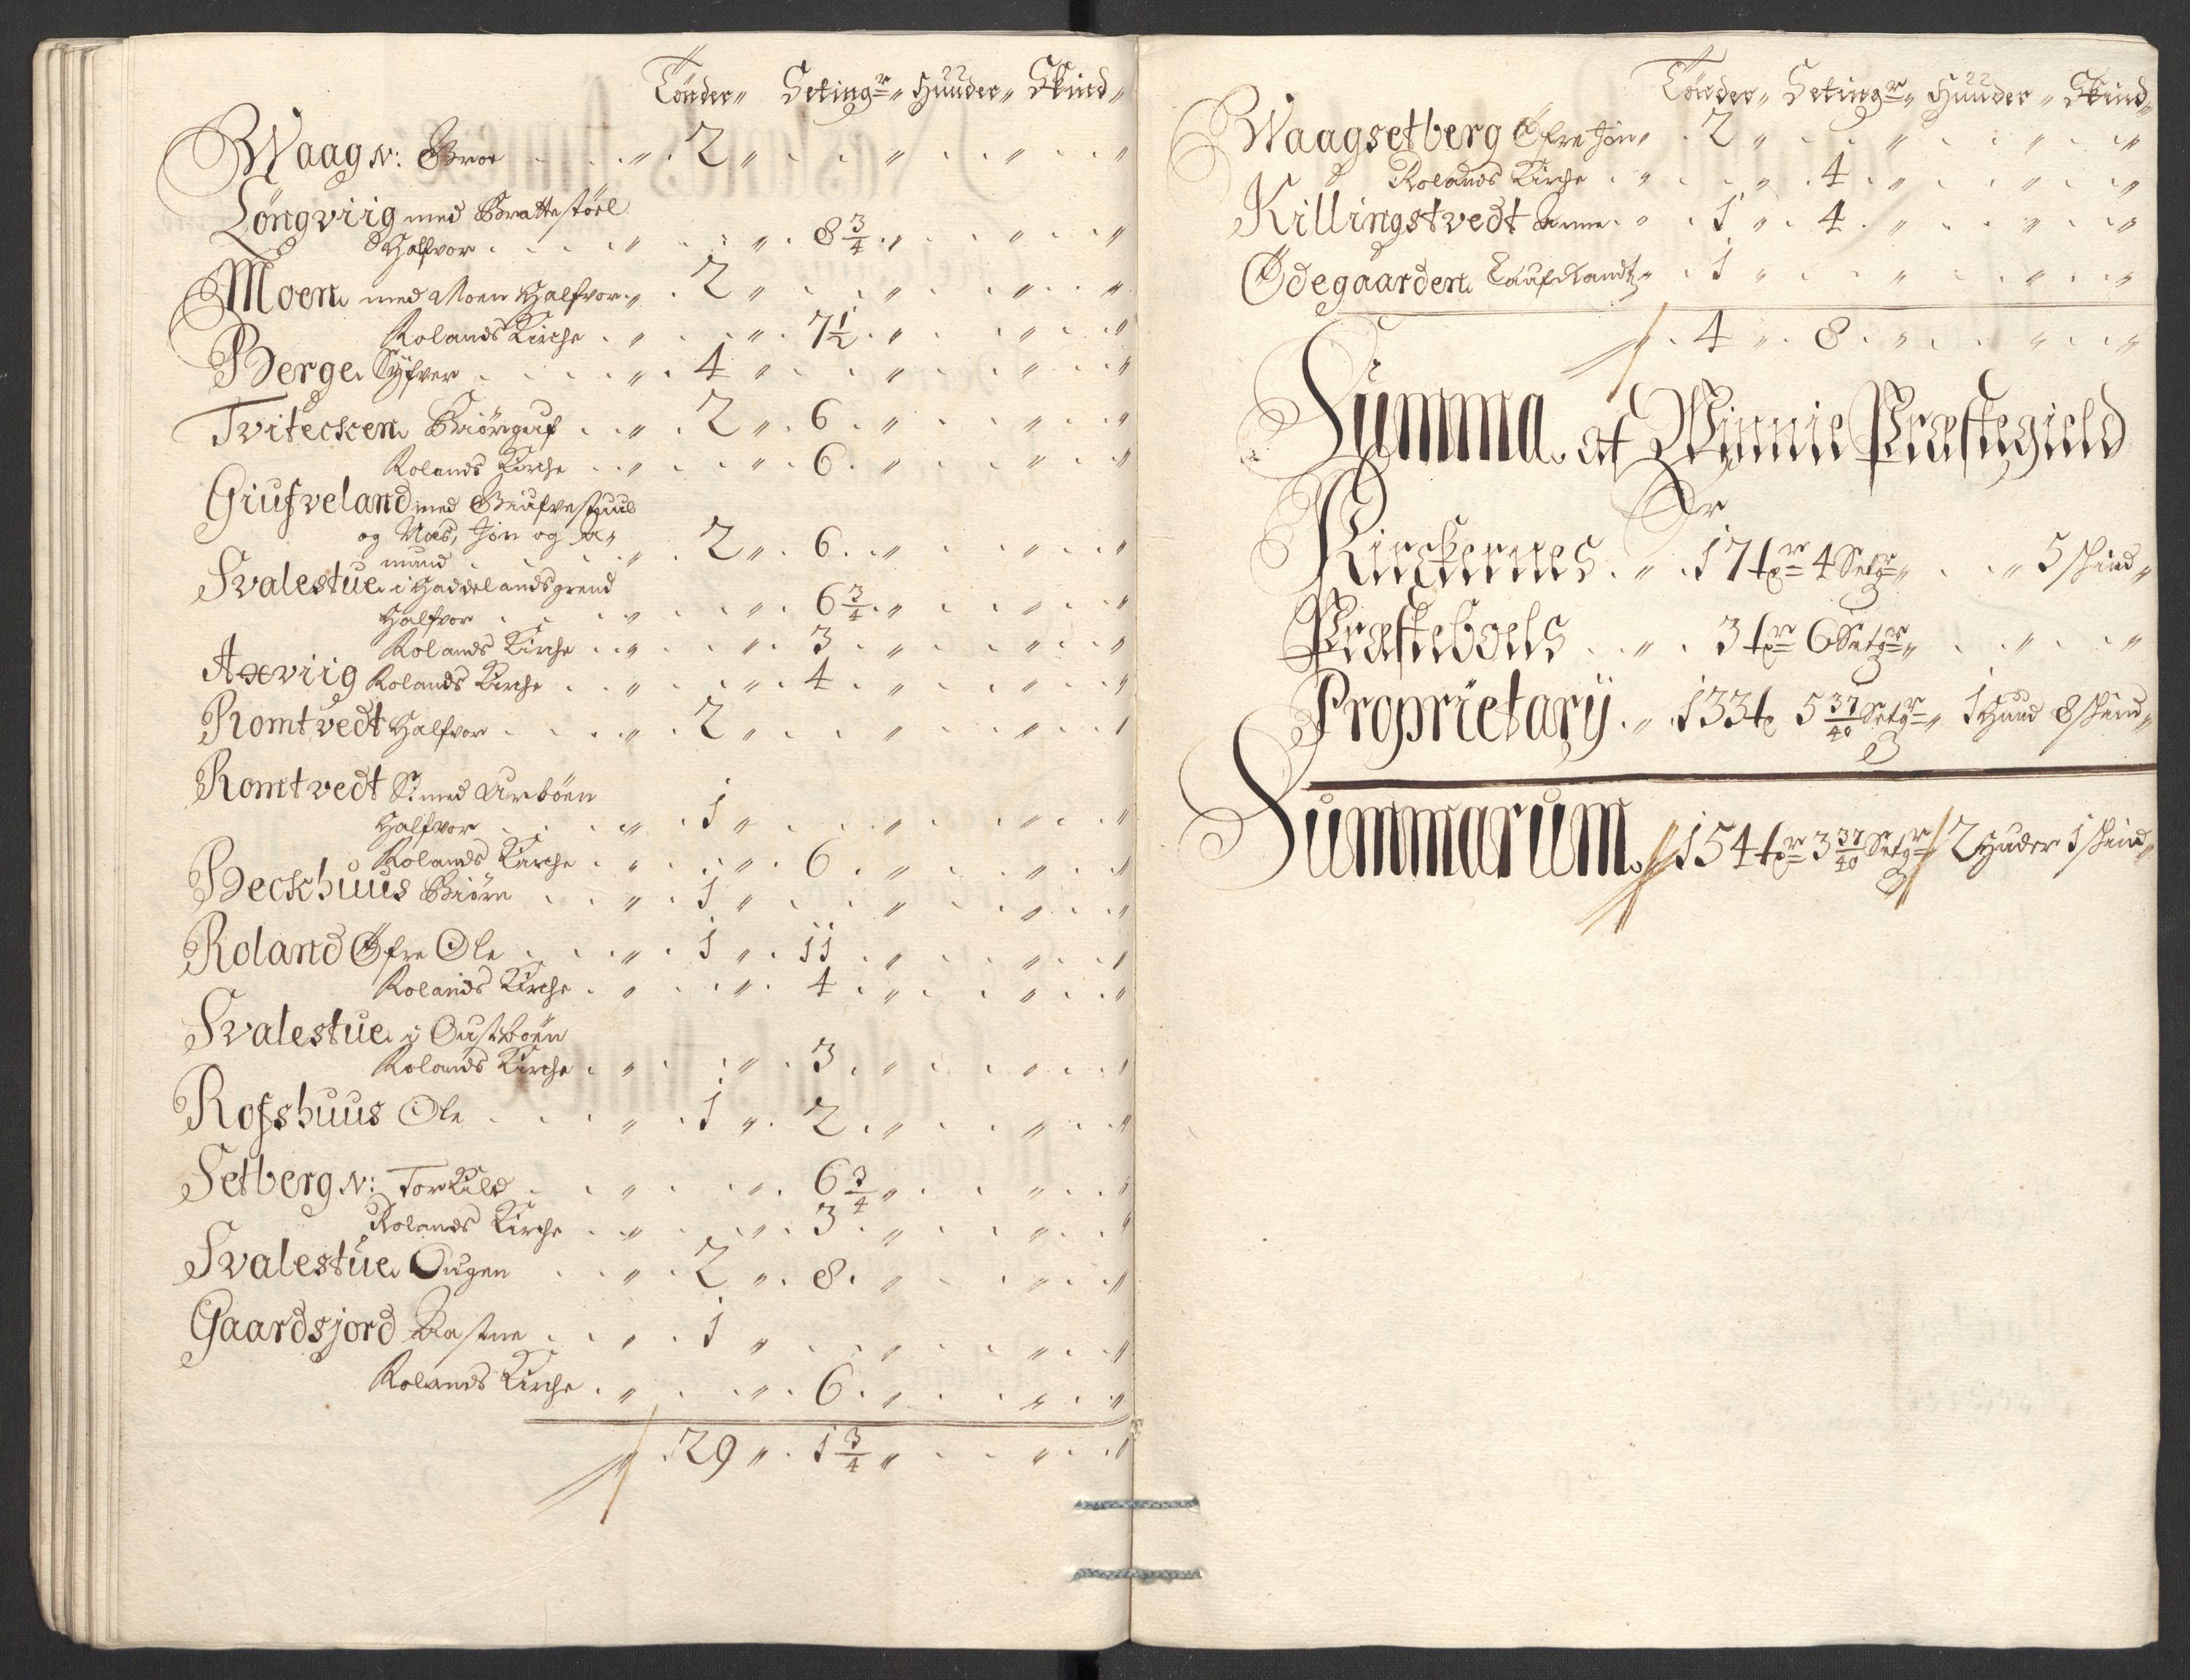 Tönder„ Setingr„ Huuder„ Skind„
Waag N: Broe . . . „ . 2 „ . . „ . . „ . . „
Löngviig med Brattestöel
Halfvor . . . „ . . „ . 8 3/4 . „ . . „ . . „
Moen med Moen Halfvor „ . 2 „ . . „ . . „ . . „
Rolands Kirche . „ . . „ . 7 1/2 . „ . . „ . . „
Berge Syfver . . . . „ . 4 „ . . „ . . „ . . „
Tvitecken Biörguf . . „ . 2 „ . 6 . „ . . „ . . „
Rolands Kirche . . „ . . „ . 6 . „ . . „ . . „
Giufveland med Giufvestuul
og Næs, Jon og A„
mund . . . . „ . 2 „ . 6 . „ . . „ . . „
Svalestue i Haddelandsgrend
Halfvor . . . „ . . „ . 6 3/4 . „ . . „ . . „
Rolands Kirche . . „ . . „ . 3 . „ . . „ . . „
Axviig Rolands Kirche . . „ . . „ . 4 . „ . . „ . . „
Romtvedt Halfvor . . . „ . 2 „ . . „ . . „ . . „
Romtvedt S: med Urböen
Halfvor . . . „ . 1 „ . . „ . . „ . . „
Rolands Kirche . „ . . „ . 6 . „ . . „ . . „
Beckhuus Biörn . . „ . 1 „ . . „ . . „ . . „
Roland Øfre Ole . . . „ . 1 „ . 11 . „ . . „ . . „
Rolands Kirche . „ . . „ . 4 . „ . . „ . . „
Svalestue i Oustböen
Rolands Kirche . „ . . „ . 3 . „ . . „ . . „
Rosshuus Ole . . . „ . 1 „ . 2 . „ . . „ . . „
Setberg N: Torkild . . „ . . „ . 6 3/4 „ . . „ . . „
Rolands Kirche . . „ . . „ . 3 . „ . . „ . . „
Svalestue Ougen . . „ . 2 „ . 8 . „ . . „ . . „
Gaardsjord Aasne . . „ . 1 „ . . „ . . „ . . „
Rolands Kirche . „ . . „ . 6 . „ . . „ . . „
„ . 29 „ . 1 3/4 „ . . „ . . „
Tönder„ Setingr„ Huuder„ Skind„
Waagsetberg Øfre Jon „ . 2 „ . . „ . . „ . . „
Rolands Kirche . „ . . „ . 4 . „ . . „ . . „
Killingstvedt Anne . „ . 1 „ . 4 . „ . . „ . . „
Ödegaarden „ . 1 „ . . „ . . „ . . „
„ . 4 „ . 8 . „ . . „ . . „
Summa af Winnie Præstegield
Er
Kirckernes . „ . 17 tr 4 Setgr „ . . „ 5 skind „
Præsteboels . . „ . 3 tr 6 Setgr „ . . „ . . „
Proprietary . „ . 133 t 5 37/40 Setgr „ 1 Huud 8 skind „
Summarum „ 154 tr 3 37/40 Setgr 2 Huder 1 skind „